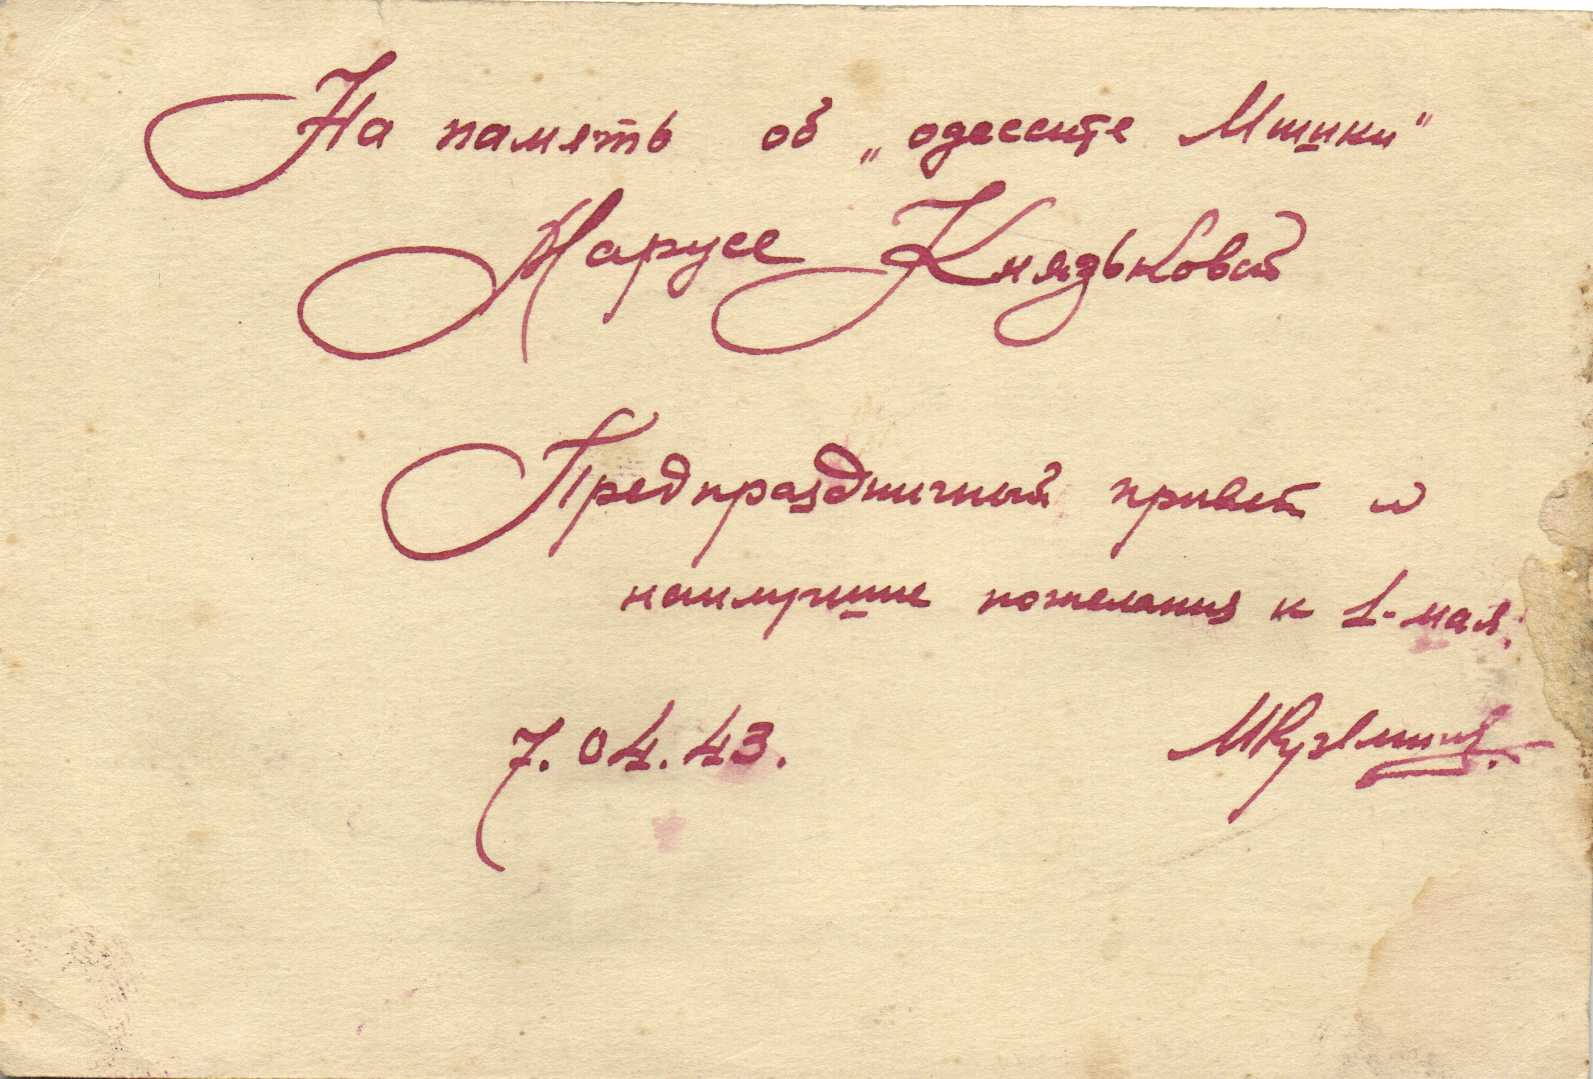 На память об „одессите Мишки"
Марусе Князьковой
Предпраздничный привет и
наилучшие пожелания к 1-мая.
7.04.43.